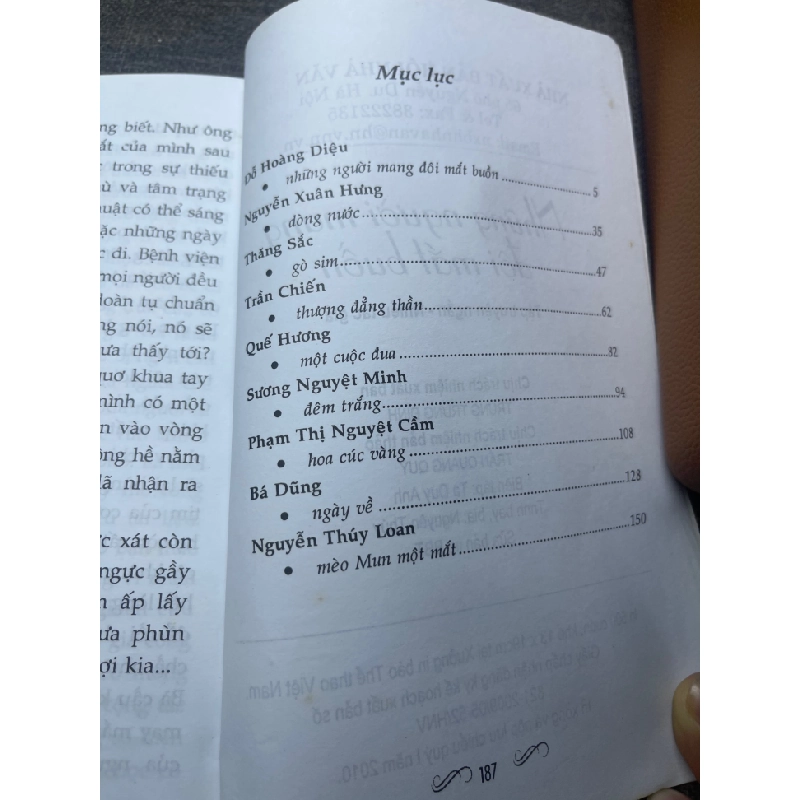 ng biết. Như ông
ất của mình sau
trong sự thiếu
ù và tâm trạng
uật có thể sáng
ặc những ngày
c đi. Bệnh viện
mọi người đều
đoàn tụ chuẩn
ng nói, nó sẽ
ưa thấy tới?
quơ khua tay
mình có một
n vào vòng
ông hề nằm
đã nhận ra
ức xát còn
ngực gầy
n ấp lấy
ưa phùn
ợi kia...
Mục lục
Đỗ Hoàng Diệu
• những người mang đôi mắt buồn 5
Nguyễn Xuân Hưng
• dòng nước 35
Thăng Sắc
• gò sim 47
Trần Chiến
• thượng đẳng thần 62
Quế Hương
• một cuộc đua 82
Sương Nguyệt Minh
• đêm trắng 94
Phạm Thị Nguyệt Cầm
• hoa cúc vàng 108
Bá Dũng
• ngày về 128
Nguyễn Thúy Loan
• mèo Mun một mắt 150
187